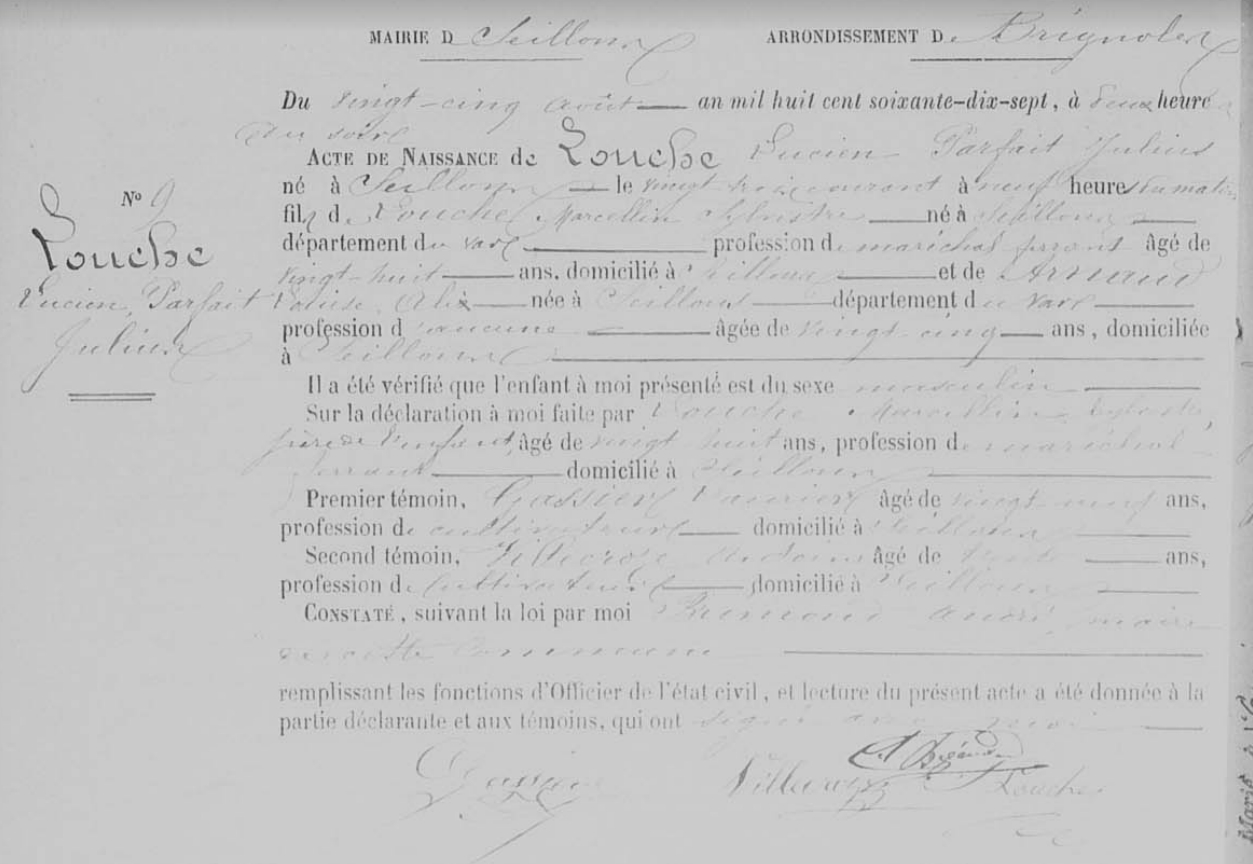 MAIRIE D Seillons ARRONDISSEMENT De Brignoles
Du vingt-cinq août an mil huit cent soixante-dix-sept, à deux heure
du soir
ACTE DE NAISSANCE de Louche Lucien Parfait Julius
né à Seillons le vingt trois courant à neuf heures du matin
fils de Louche Marcellin Sylvestre né à Seillons
département du var profession de maréchal ferrant âgé de
vingt-huit ans, domicilié à Seillons et de Arnaud
Louise, Alix née à Seillons département du var
profession d aucune âgée de vingt-cinq ans, domiciliée
à Seillons
Il a été vérifié que l'enfant à moi présenté est du sexe masculin
Sur la déclaration à moi faite par Louche Marcellin Sylvestre,
père de l'enfant, âgé de vingt huit ans, profession de maréchal
ferrant domicilié à Seillons
Premier témoin, Gassier âgé de vingt neuf ans,
profession de cultivateur domicilié à Seillons
Second témoin, Villecroze Antoine âgé de trente ans,
profession de cultivateur domicilié à Seillons
CONSTATÉ, suivant la loi par moi André, maire
de cette commune
remplissant les fonctions d'Officier de l'état civil, et lecture du présent acte a été donnée à la
partie déclarante et aux témoins, qui ont signé avec moi
Gassier Villecroze Louche
N° 9
Louche
Lucien, Parfait
Julius